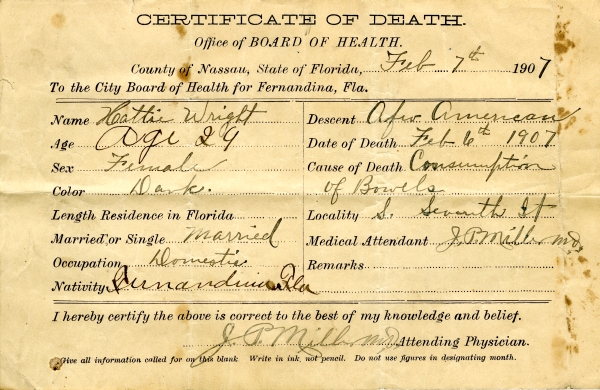 CERTIFICATE OF DEATH.
Office of BOARD OF HEALTH.
County of Nassau, State of Florida, Feb 7th 1907
To the City Board of Health for Fernandina, Fla.
Name Hattie Wright
Age Age 29
Sex Female
Color Dark.
Length Residence in Florida
Married or Single Married
Occupation Domestic
Nativity Fernandina Fla
Descent Afro American
Date of Death Feb 6th 1907
Cause of Death Consumption
of Bowels
Locality S. Seventh St
Medical Attendant J. P. Miller MD.
Remarks
I hereby certify the above is correct to the best of my knowledge and belief.
J. P. Miller MD Attending Physician.
Give all information called for on this blank Write in ink, not pencil. Do not use figures in designating month.